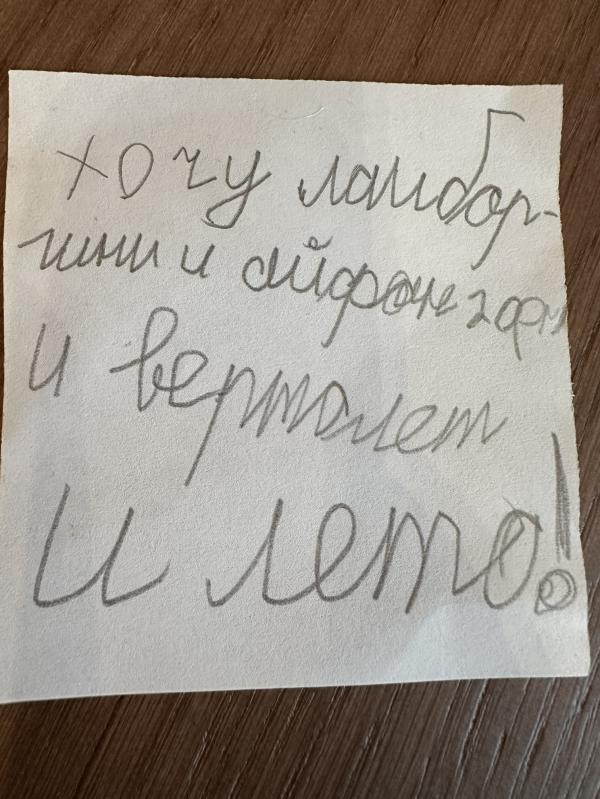 хочу ламбор-
гини и айфон
и вертолет
и лето!